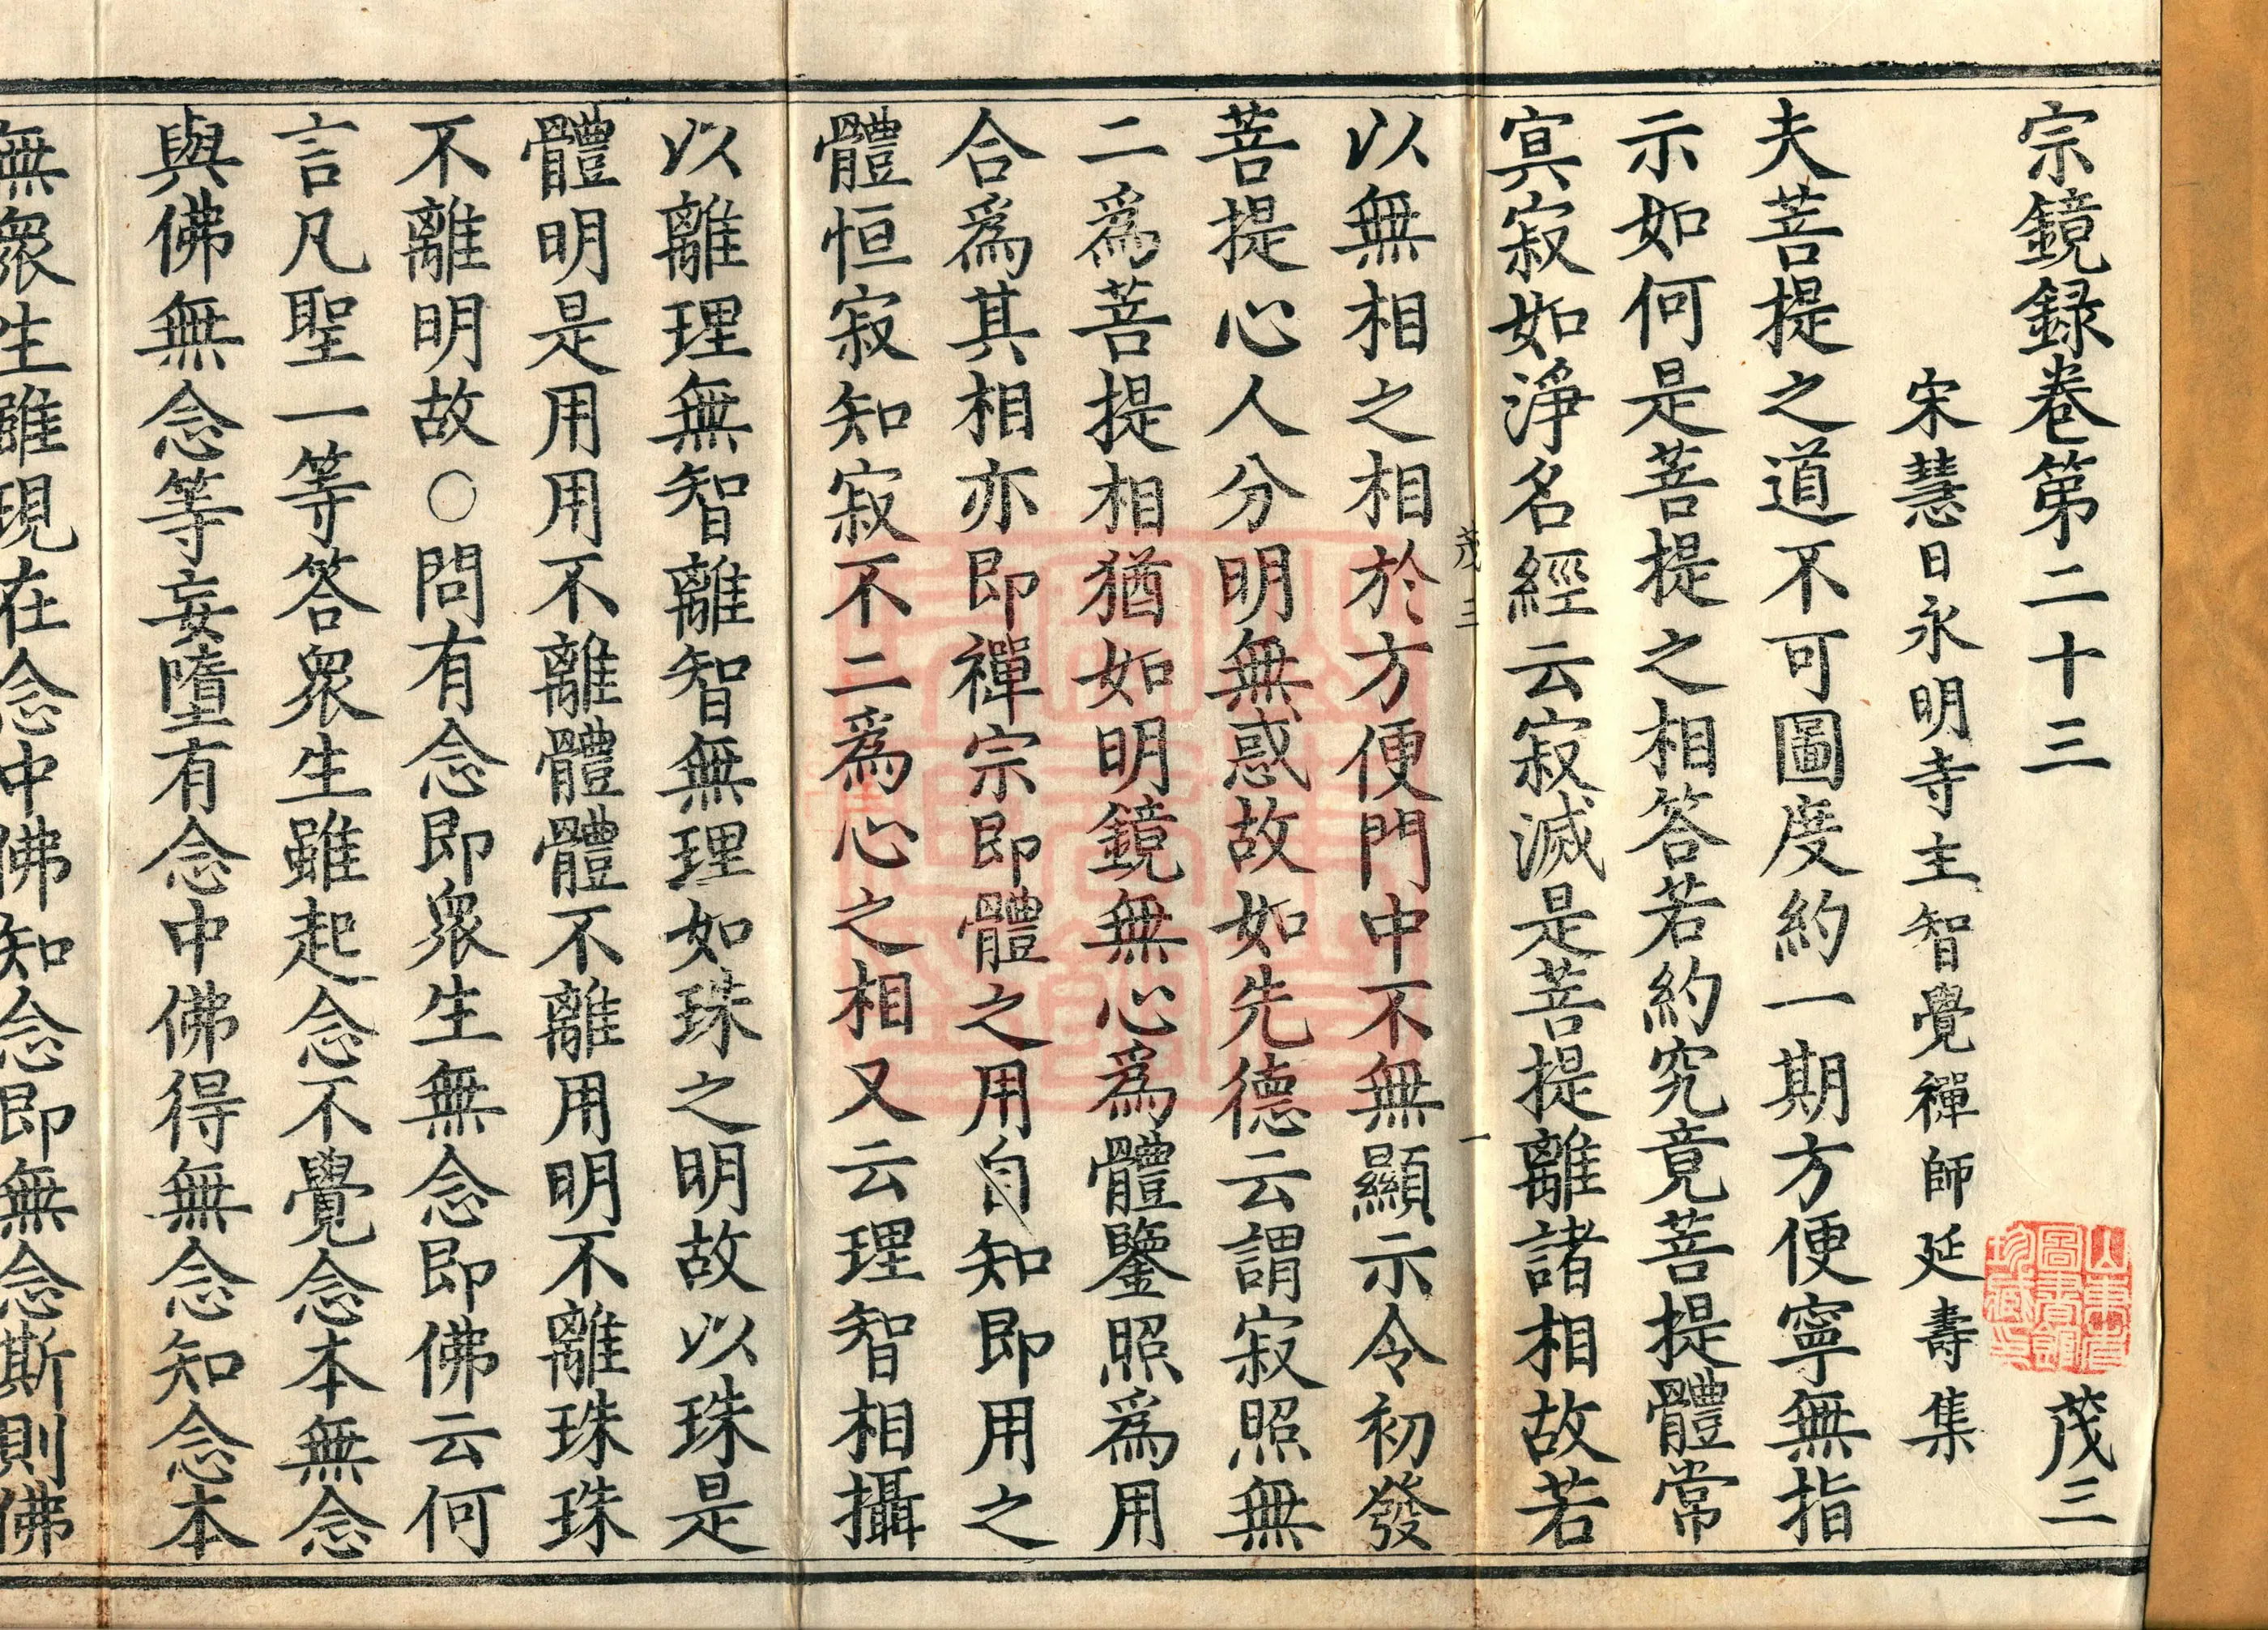 宗鏡録卷第二十三 茂三
宋慧日永明寺主智覺禪師延壽集
夫菩提之道不可圖度約一期方便寧無指
示如何是菩提之相答若約究竟菩提體常
寘寂如淨名經云寂滅是菩提離諸相故若
茂三 一
以無相之相於方便門中不無顯示令初發
菩提心人分明無惑故如先德云謂寂照無
二為菩提相猶如明鏡無心為體鑒照為用
合為其相亦即禪宗即體之用自知即用之
體恒寂知寂不二為心之相又云理智相攝
以離理無智離智無理如珠之明故以珠是
體明是用用不離體體不離用明不離珠珠
不離明故○問有念即衆生無念即佛云何
言凡聖一等答衆生雖起念不覺念本無念
與佛無念等妄墮有念中佛得無念知念本
無衆生雖現在念中佛知念即無念斯則佛
山東省
圖書館
珍藏印